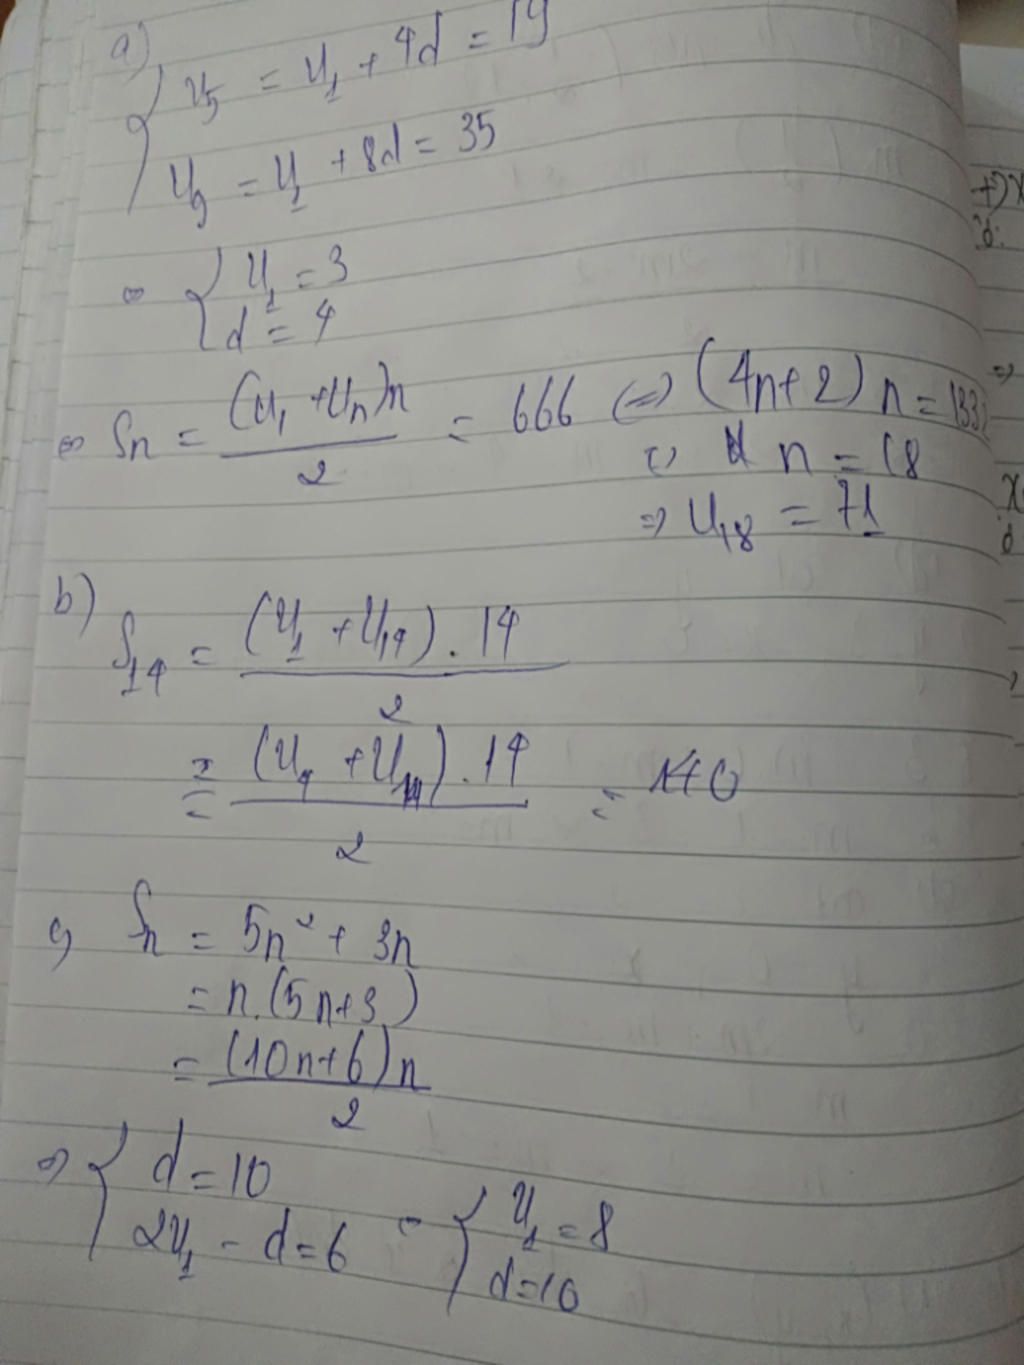 a)
{ u₅ = u₁ + 4d = 19
u₉ = u₁ + 8d = 35
⇔ { u₁ = 3
d = 4
⇔ Sn = (u₁ + un)n / 2 = 666 ⇔ (4n+2) n = 1332
⇔ n = 18
⇒ u₁₈ = 71
b)
S₁₄ = (u₁ + u₁₄) . 14 / 2
= (u₄ + u₁₁) . 14 / 2 = 140
c) Sn = 5n² + 3n
= n.(5n+3)
= (10n+6)n / 2
⇒ { d = 10
2u₁ - d = 6
⇔ { u₁ = 8
d = 10